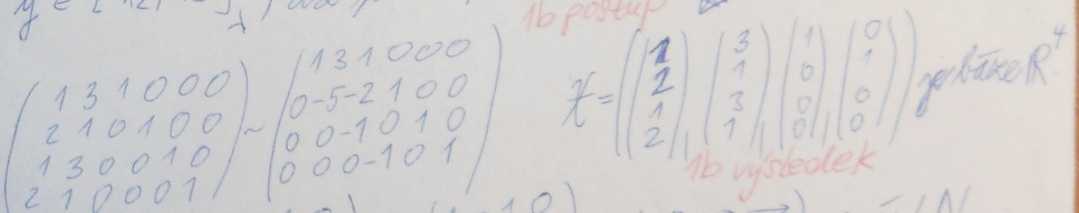 1b postup
( 1 3 1 0 0 0 ) ~ ( 1 3 1 0 0 0 )
( 2 1 0 1 0 0 ) ( 0 -5 -2 1 0 0 )
( 1 3 0 0 1 0 ) ( 0 0 -1 0 1 0 )
( 2 1 0 0 0 1 ) ( 0 0 0 -1 0 1 )
X = ( ( 1 2 1 2 ) , ( 3 1 3 1 ) , ( 1 0 0 0 ) , ( 0 1 0 0 ) ) je báze R^4
1b výsledek